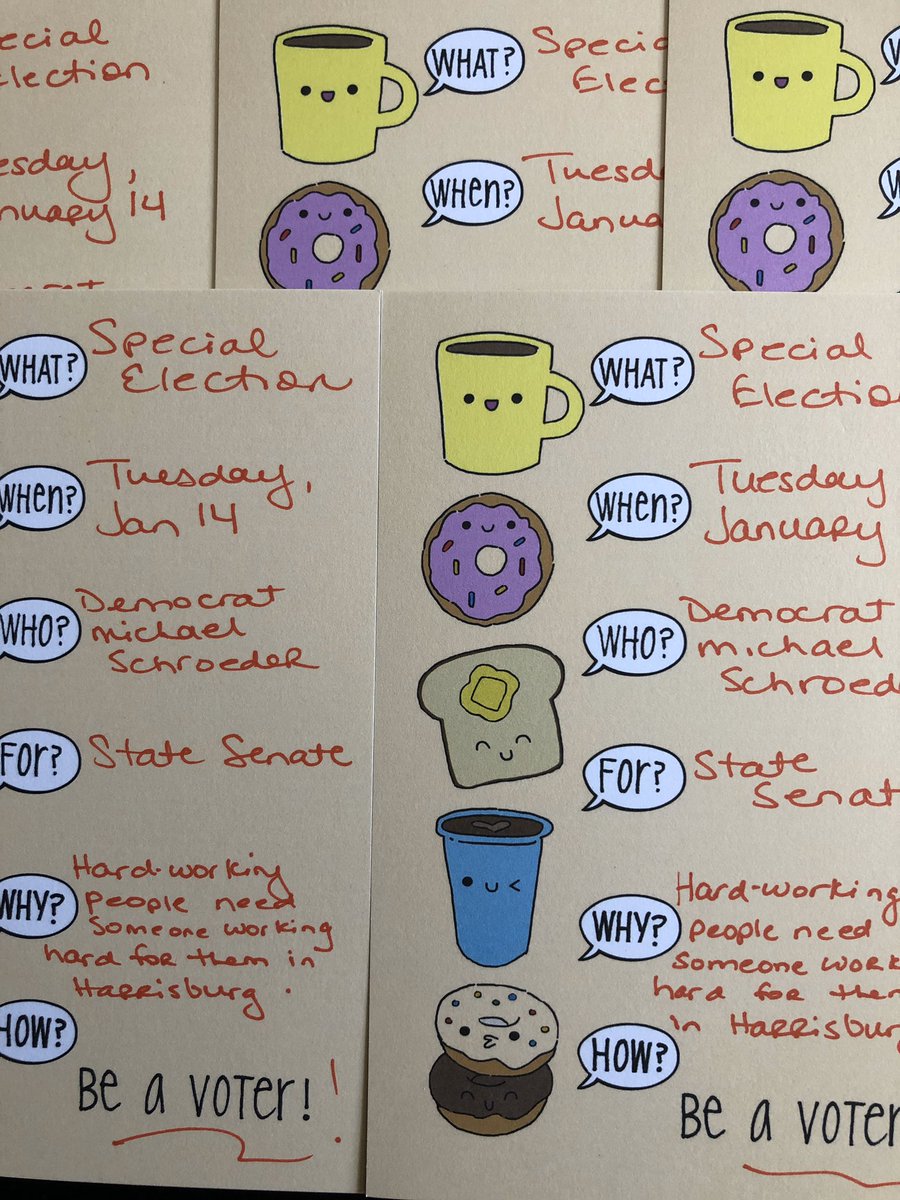 ecial
lection
esday,
nuary 14
WHAT?
Special
Elec
WHEN?
Tuesd
Janua
WHAT?
Special
Election
WHEN?
Tuesday,
Jan 14
WHO?
Democrat
michael
Schroeder
FOR?
State Senate
WHY?
Hard-working
people need
someone working
hard for them in
Harrisburg.
HOW?
Be a VOTER!!
WHAT?
Special
Election
WHEN?
Tuesday
January
WHO?
Democrat
michael
Schroede
FOR?
State
Senat
WHY?
Hard-working
people need
someone work
hard for them
in Harrisburg
HOW?
Be a VOTER